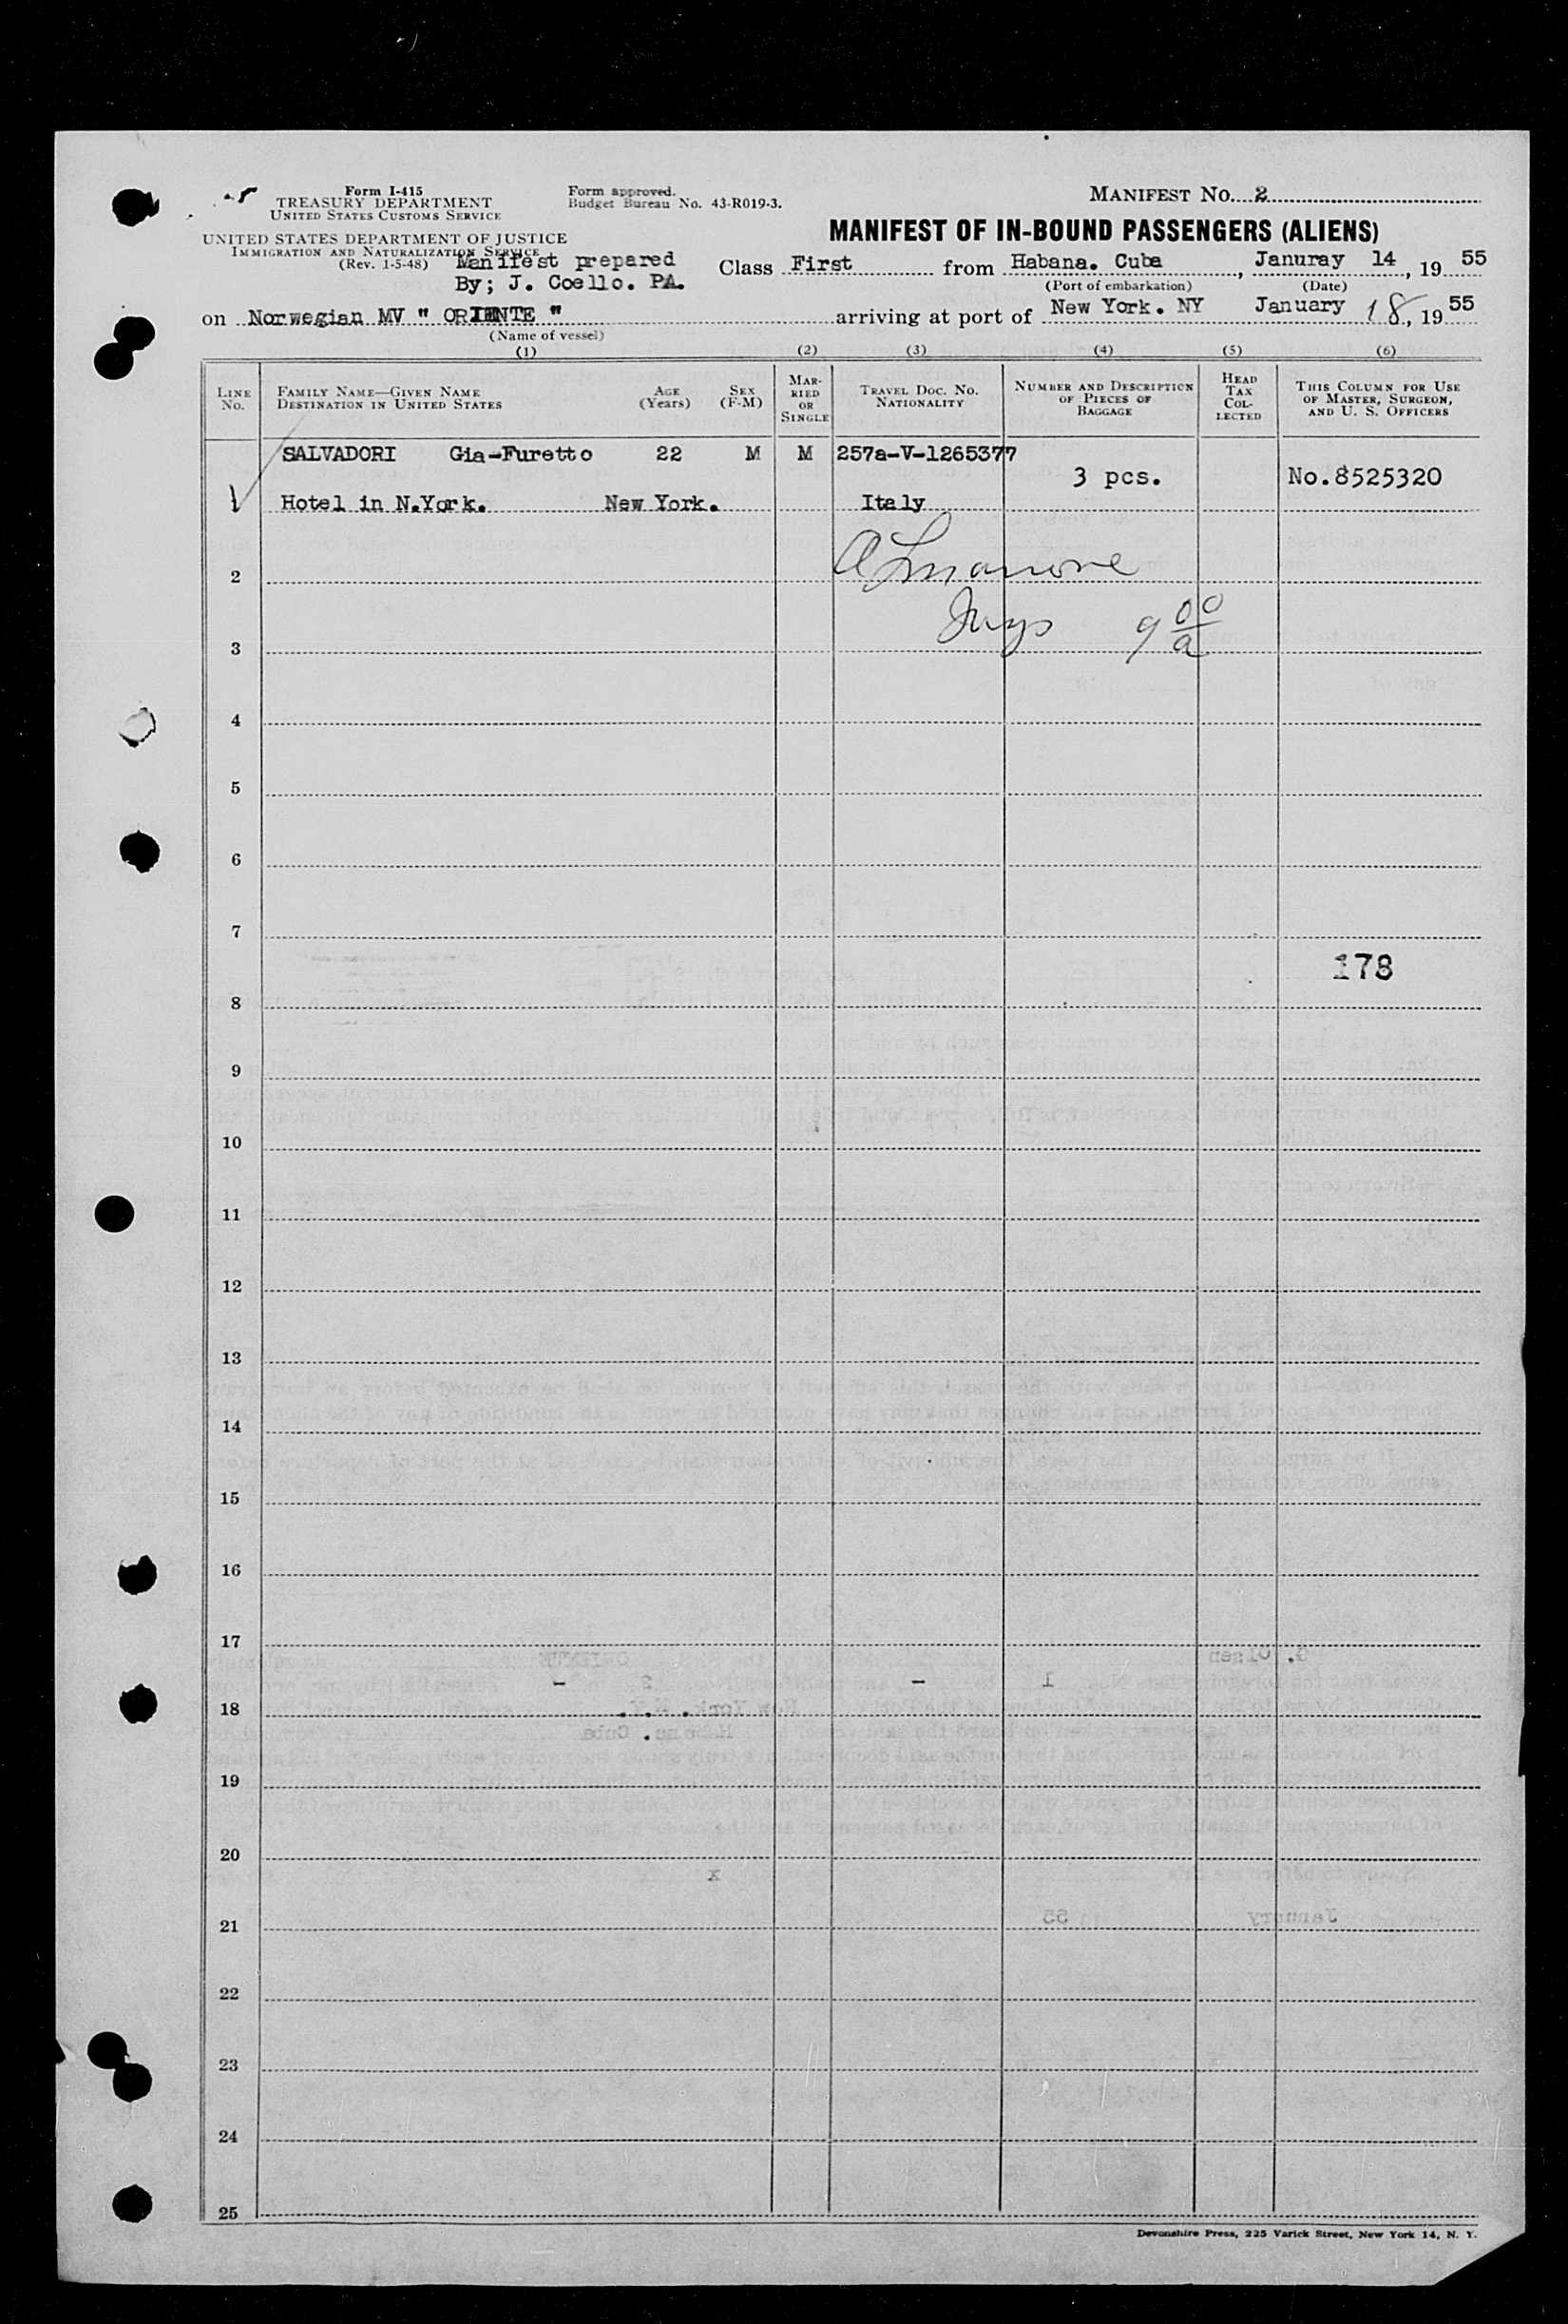 Form I-415
TREASURY DEPARTMENT
UNITED STATES CUSTOMS SERVICE
Form approved.
Budget Bureau No. 43-R019-3.
MANIFEST NO. 2
UNITED STATES DEPARTMENT OF JUSTICE
IMMIGRATION AND NATURALIZATION SERVICE
(Rev. 1-5-48)
Manifest prepared
By; J. Coello. PA.
MANIFEST OF IN-BOUND PASSENGERS (ALIENS)
Class First from Habana. Cuba, Januray 14, 19 55
(Port of embarkation) (Date)
on Norwegian MV " ORIENTE " arriving at port of New York. NY January 18, 19 55
(Name of vessel)
(1) (2) (3) (4) (5) (6)
LINE NO.
FAMILY NAME—GIVEN NAME
DESTINATION IN UNITED STATES
AGE (Years)
SEX (F-M)
MARRIED OR SINGLE
TRAVEL DOC. NO.
NATIONALITY
NUMBER AND DESCRIPTION OF PIECES OF BAGGAGE
HEAD TAX COLLECTED
THIS COLUMN FOR USE OF MASTER, SURGEON, AND U. S. OFFICERS
SALVADORI Gia-Furetto 22 M M 257a-V-1265377
3 pcs. No.8525320
Hotel in N.York. New York. Italy
2
3
9 00/a
4
5
6
7
178
8
9
10
11
12
13
14
15
16
17
18
19
20
21
22
23
24
25
Devonshire Press, 225 Varick Street, New York 14, N. Y.